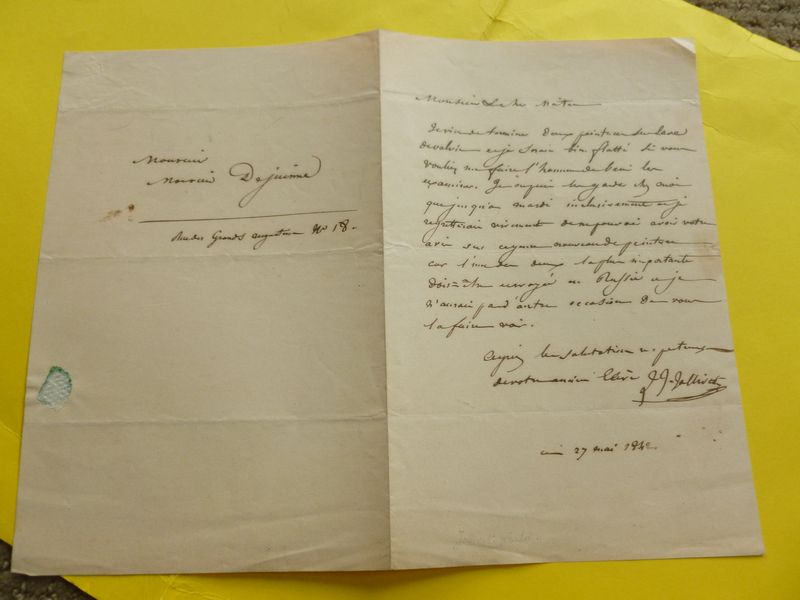 Monsieur
Monsieur Dejuinne
Rue des Grands augustins No 18.
Monsieur et cher Maitre
Je viens de terminer deux peintures sur lave
de volvic et je serais bien flatté si vous
vouliez me faire l'honneur de venir les
examiner. Je ne puis les garder chez moi
que jusqu'au mardi inclusivement et je
regretterais vivement de ne pouvoir avoir votre
avis sur ce genre nouveau de peinture
car l'une des deux la plus importante
doit=être envoyée en Russie et je
n'aurais pas d'autre occasion de vous
la faire voir.
Agréez les salutations respectueuses
de votre ancien Elève J. J. Jollivet
27 mai 184